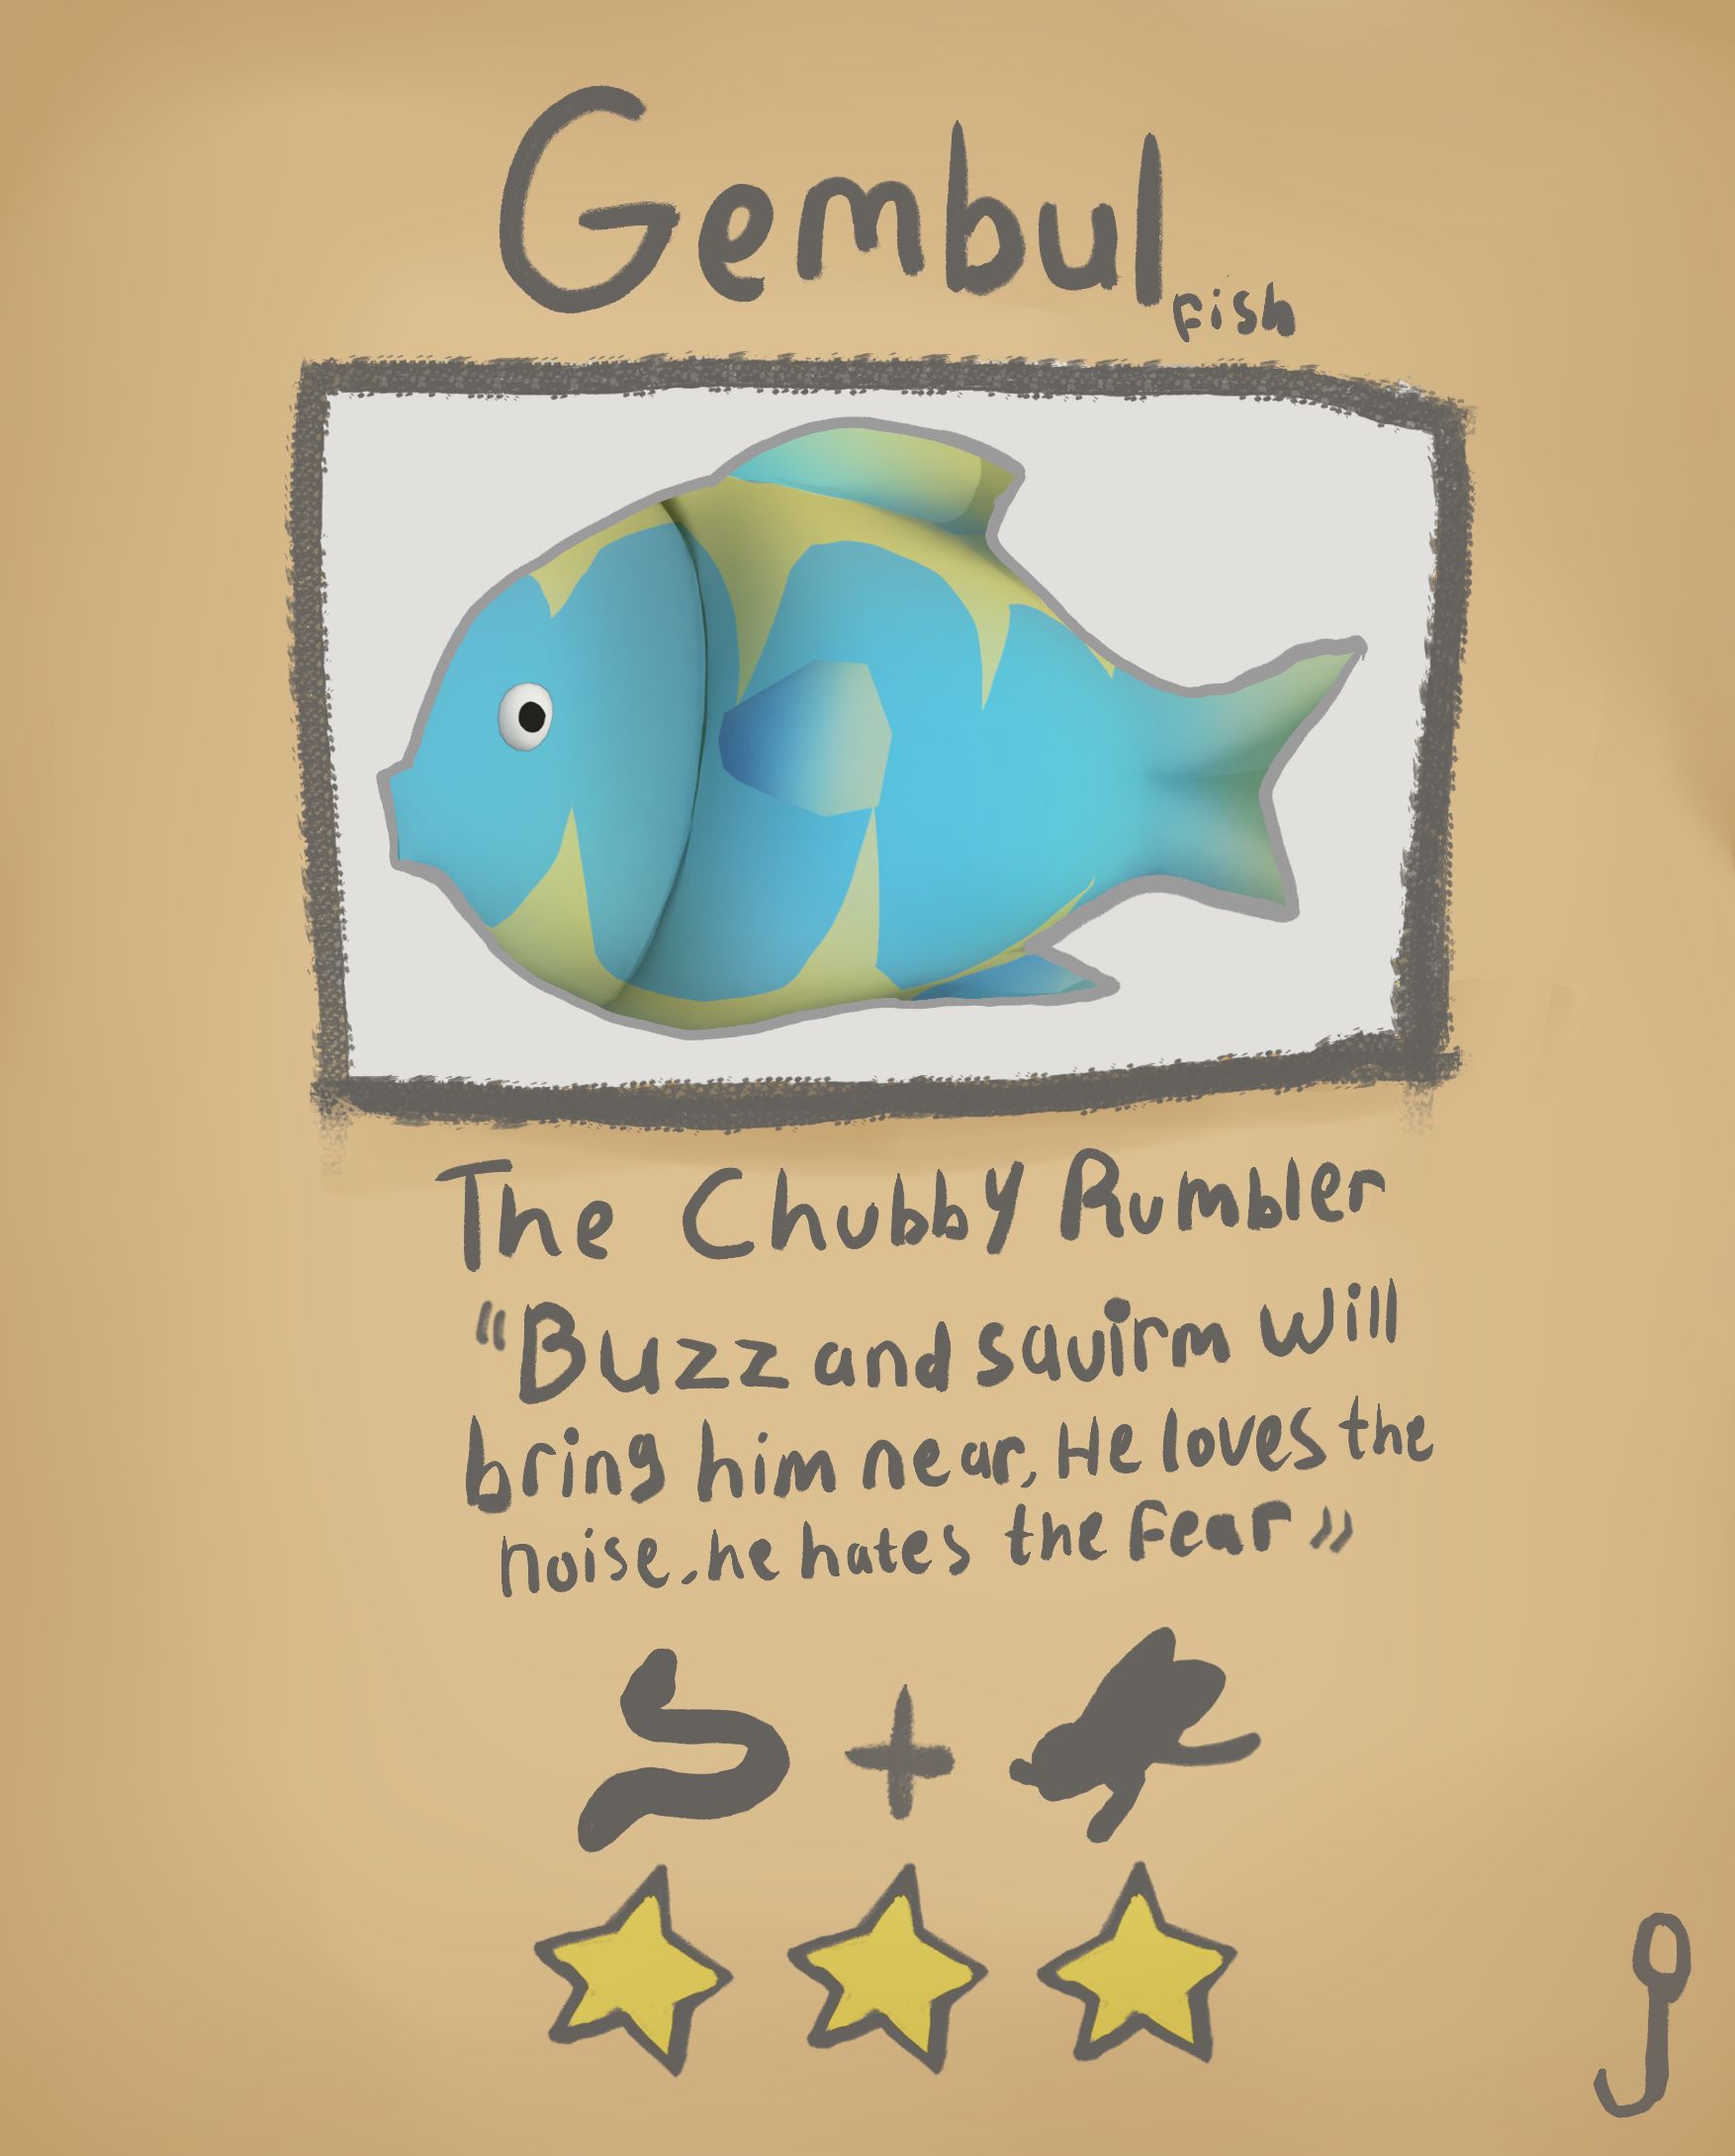 Gembul
fish
The Chubby Rumbler
"Buzz and squirm will
bring him near, He loves the
noise, he hates the fear"
+